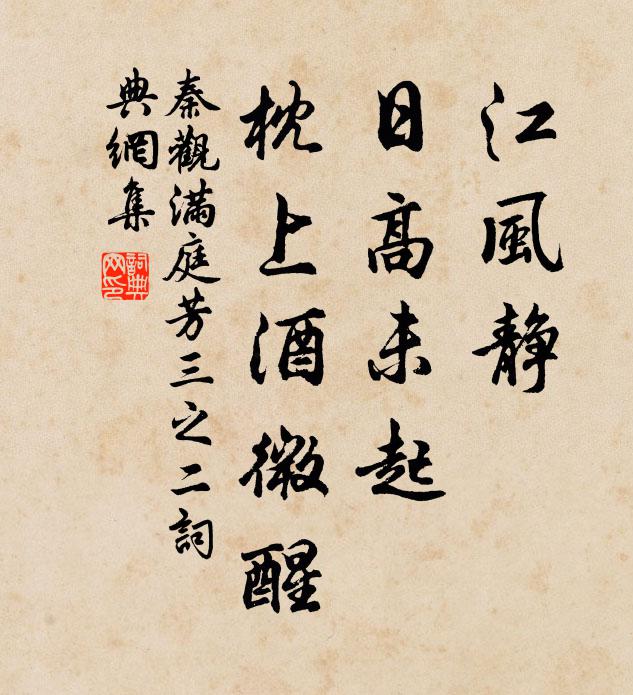 江風静
日高未起
枕上酒微醒
秦觀滿庭芳三之二詞
典網集
詞典
网印